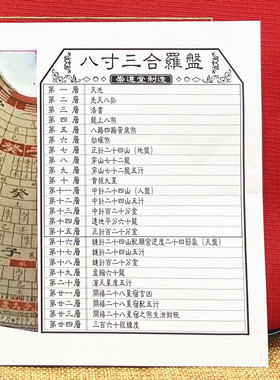 八寸三合羅盤
崇道堂制造
第一層 天池
第二層 先天八卦
第三層 洛書
第四層 龍上八煞
第五層 八路四路黃泉煞
第六層 劫曜煞
第七層 正針二十四山(地盤)
第八層 穿山七十二龍
第九層 穿山七十二龍五行
第十層 貴殺九星
第十一層 中針二十四山(人盤)
第十二層 中針二十四山五行
第十三層 正針百二十分金
第十四層 正針百二十分金
第十五層 中針百二十分金
第十六層 縫針二十四山配順宮逆度二十四節氣(天盤)
第十七層 縫針百二十分金
第十八層 縫針百二十分金
第十九層 盈縮六十龍
第二十層 渾天星度五行
第廿一層 開禧二十八星宿宮凶
第廿二層 開禧二十八星宿配五行
第廿三層 開禧二十八星宿之煞生洩財旺
第廿四層 三百六十經緯度
癸
子